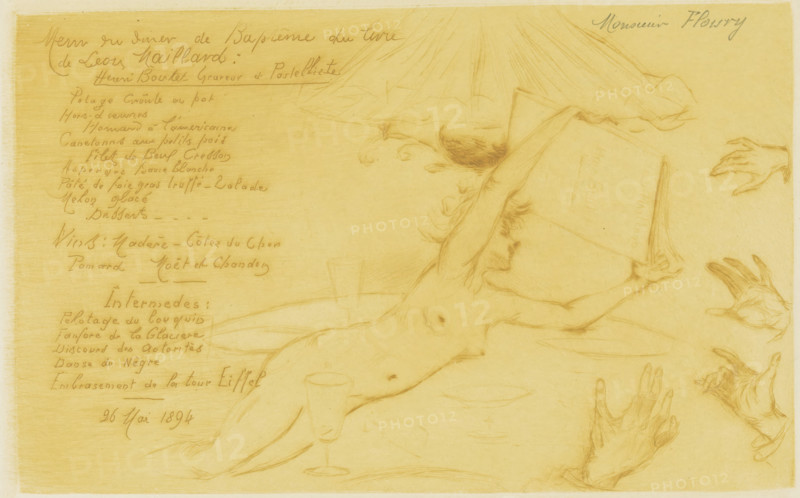 Monsieur Fleury
Menu du Diner de Baptême du livre
de Léon Maillard:
Henri Boutet Graveur et Pastelliste
Potage Croûte au pot
Hors-d'œuvres
Homard à l'américaine
Canetons aux petits pois
Filet de Bœuf Cresson
Asperges Sauce blanche
Pâté de foie gras truffé - Salade
Melon glacé
Desserts - - - -
Vins: Madère - Côtes du Cher
Pomard Moët et Chandon
Intermedes:
Pelotage du
Fanfare de la Glaciere
Discourd des Autorités
Danse du Nègre
Embrasement de la tour Eiffel
26 Mai 1894
PHOTO12